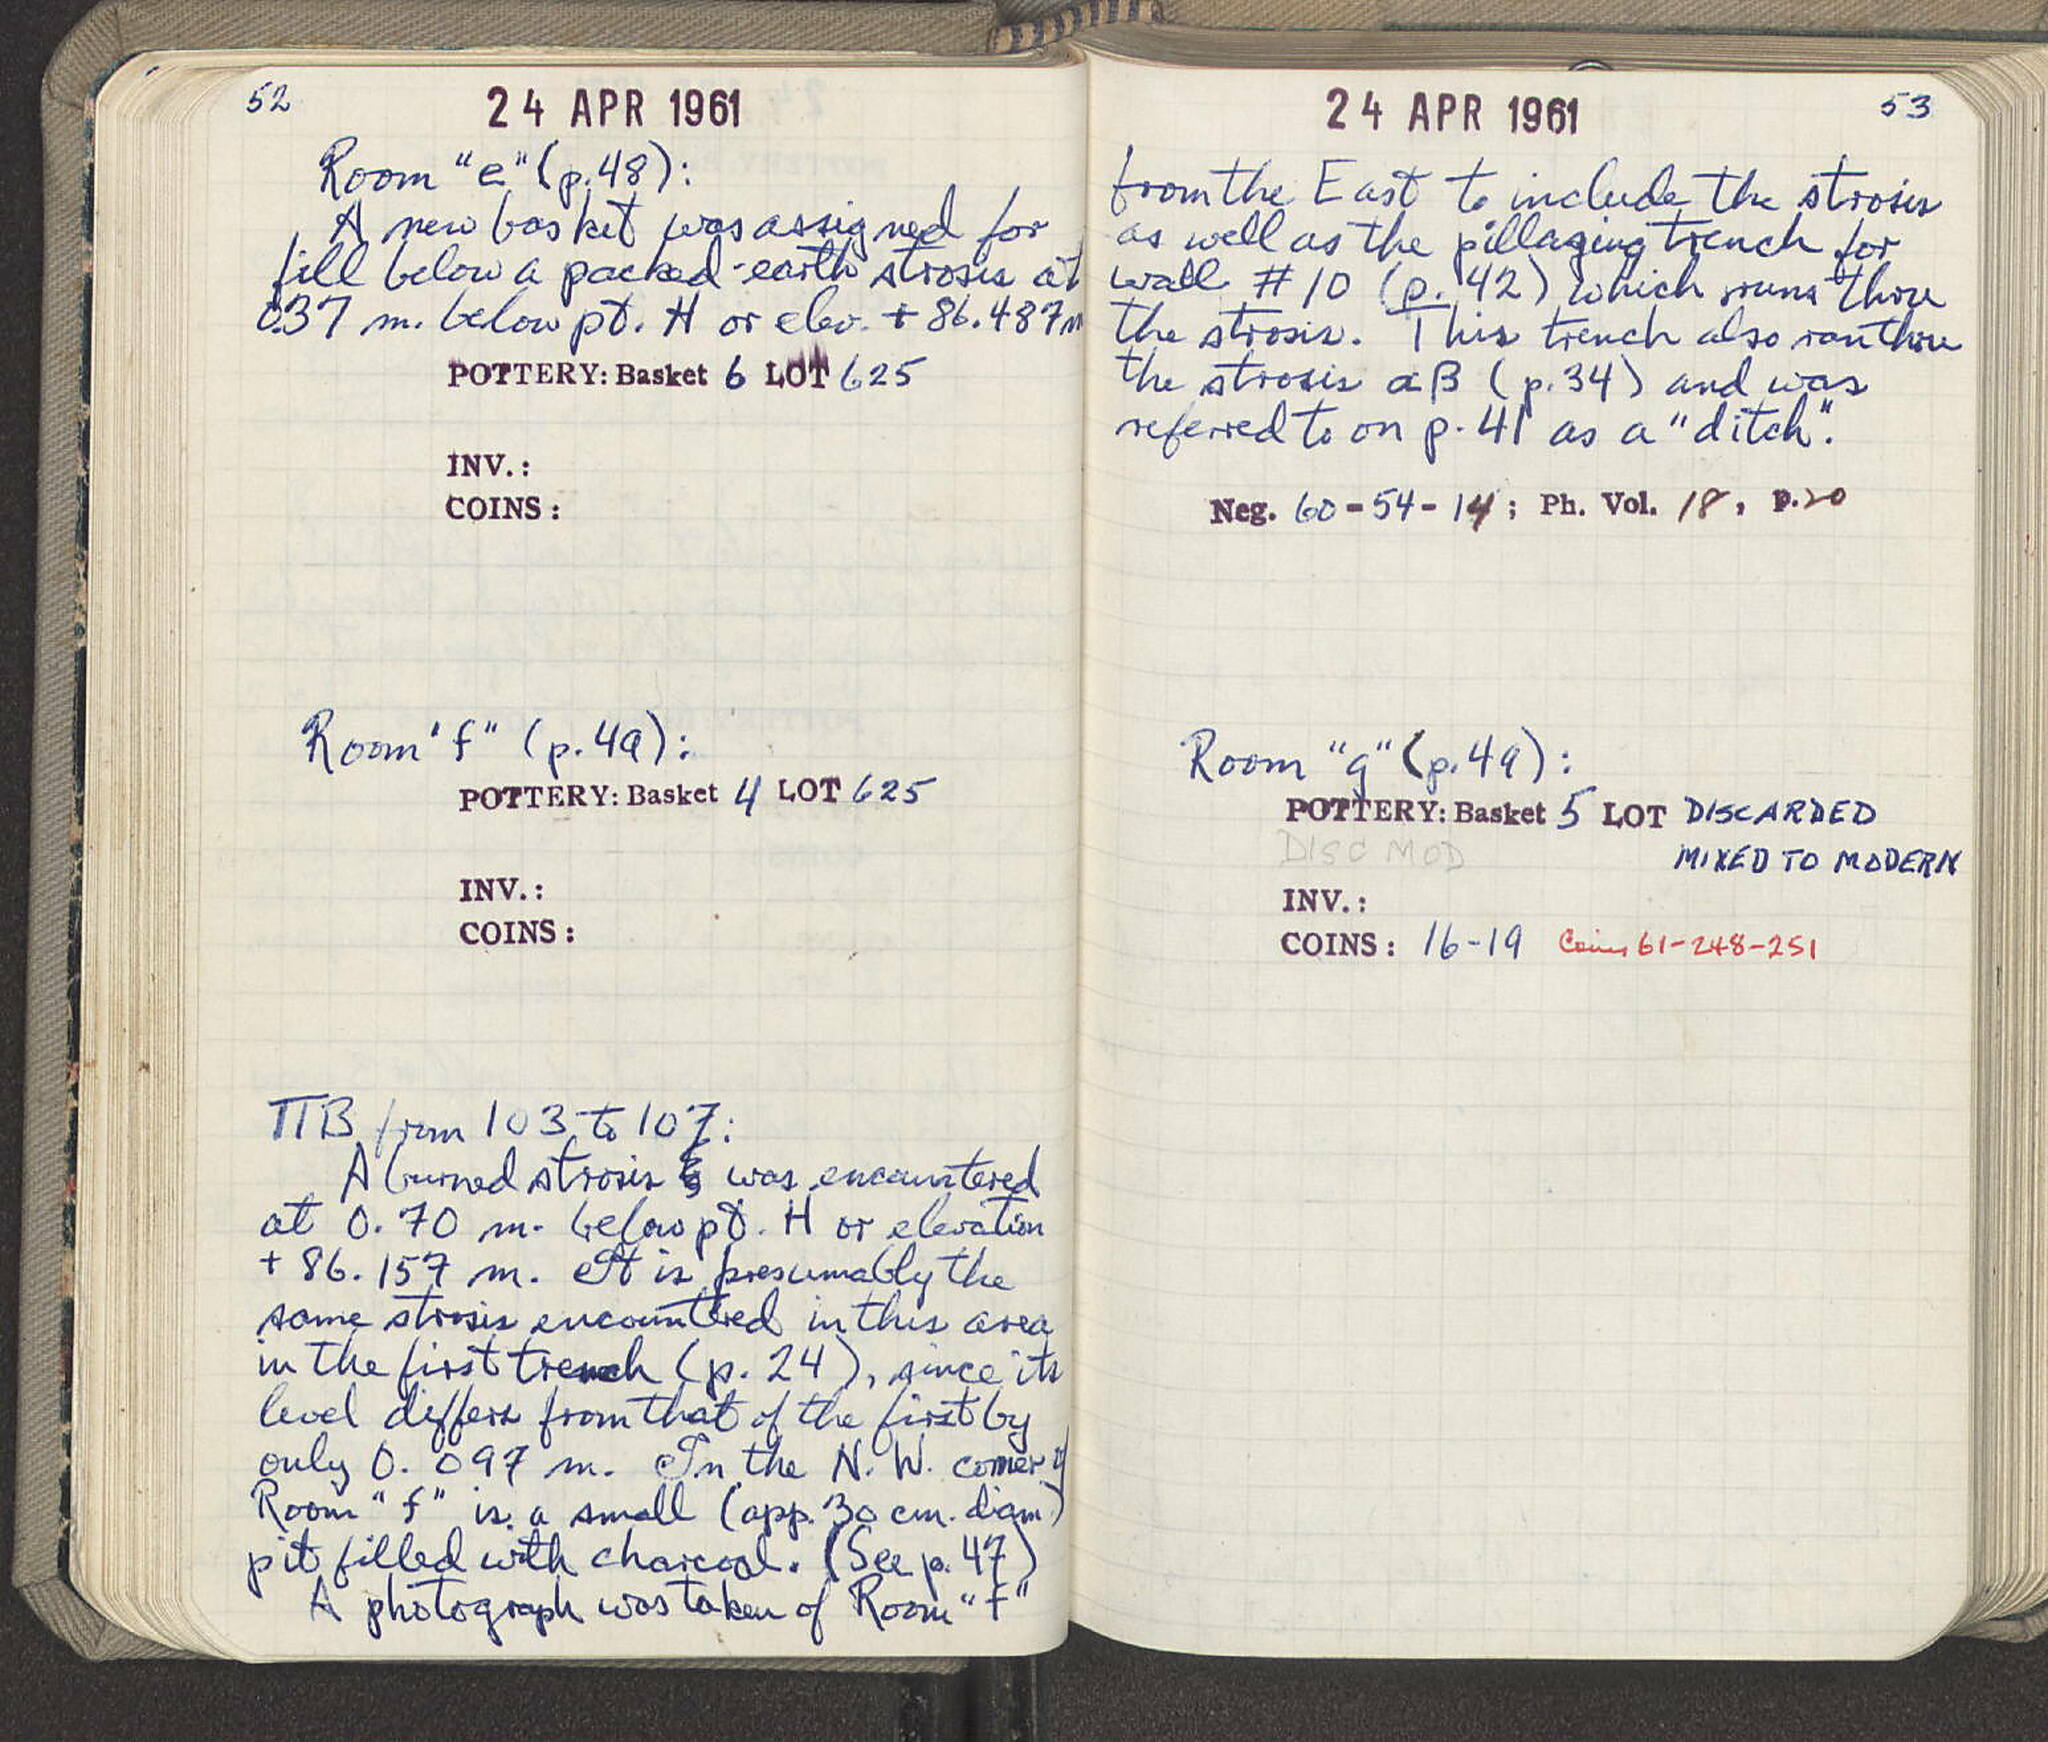 52
24 APR 1961
Room "e" (p.48):
A new basket was assigned for
fill below a packed-earth strosis at
0.37 m. below pt. H or elev. + 86.487m
POTTERY: Basket 6 LOT 625
INV.:
COINS:
Room "f" (p.49):
POTTERY: Basket 4 LOT 625
INV.:
COINS:
ΠB from 103 to 107:
A burned strosis was encountered
at 0.70 m. below pt. H or elevation
+ 86.157 m. It is presumably the
same strosis encountered in this area
in the first trench (p. 24), since its
level differs from that of the first by
only 0.097 m. In the N.W. corner of
Room "f" is a small (app. 30 cm. diam.)
pit filled with charcoal. (See p. 47)
A photograph was taken of Room "f"
24 APR 1961
53
from the East to include the strosis
as well as the pillaging trench for
wall #10 (p. 42) which runs thru
the strosis. This trench also ran thru
the strosis αB (p.34) and was
referred to on p. 41 as a "ditch".
Neg. 60-54-14; Ph. Vol. 18, p.20
Room "g" (p.49):
POTTERY: Basket 5 LOT DISCARDED
DISC MOD MIXED TO MODERN
INV.:
COINS: 16-19 Coins 61-248-251